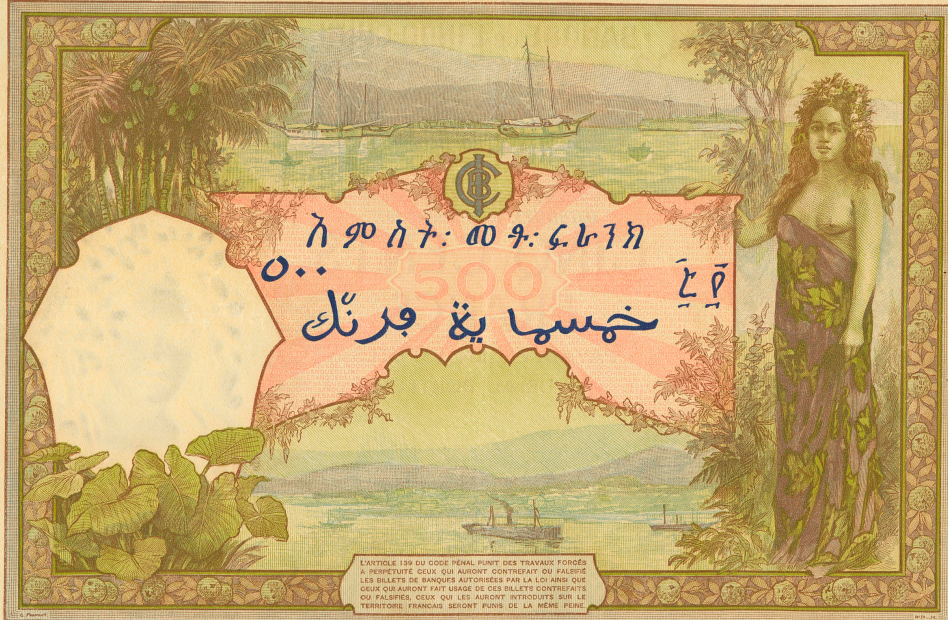 አምስት፡ መቶ፡ ፍራንክ
٥٠٠
፭፻
500
خمسماية فرنّك
L'ARTICLE 139 DU CODE PÉNAL PUNIT DES TRAVAUX FORCÉS
A PERPÉTUITÉ CEUX QUI AURONT CONTREFAIT OU FALSIFIÉ
LES BILLETS DE BANQUES AUTORISÉES PAR LA LOI AINSI QUE
CEUX QUI AURONT FAIT USAGE DE CES BILLETS CONTREFAITS
OU FALSIFIÉS, CEUX QUI LES AURONT INTRODUITS SUR LE
TERRITOIRE FRANCAIS SERONT PUNIS DE LA MÊME PEINE.